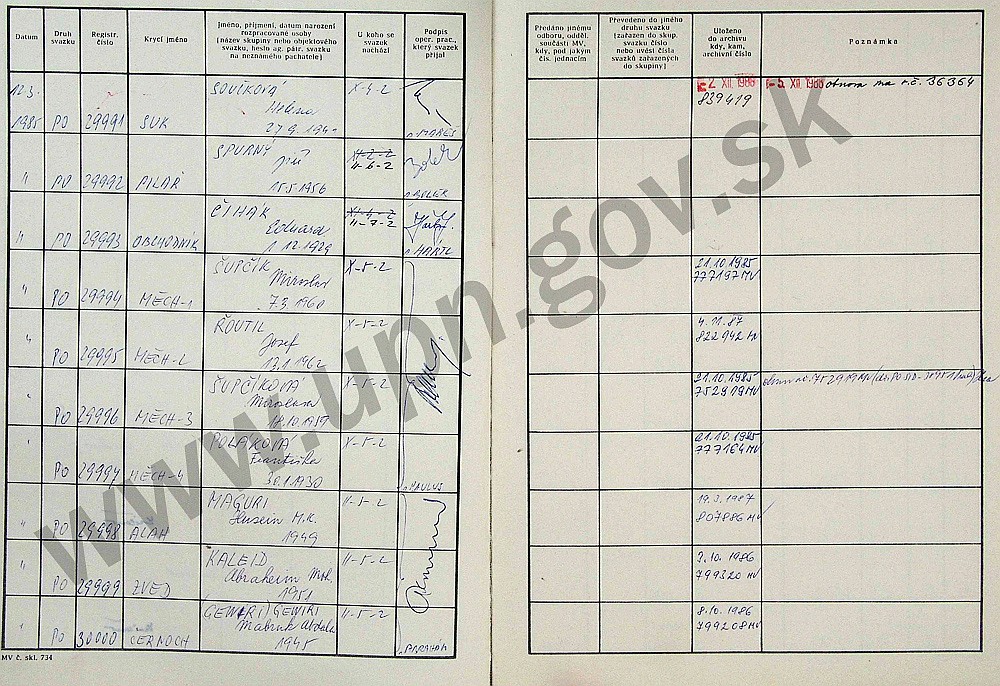 Datum
Druh
svazku
Registr.
číslo
Krycí jméno
Jméno, příjmení, datum narození
rozpracované osoby
(název skupiny nebo objektového
svazku, heslo ag. pátr. svazku
na neznámého pachatele)
U koho se
svazek
nachází
Podpis
oper. prac.,
který svazek
přijal
Předáno jinému
odboru, odděl.
součásti MV,
kdy, pod jakým
čís. jednacím
Převedeno do jiného
druhu svazku
(zařazen do skup.
svazku číslo
nebo uvést čísla
svazků zařazených
do skupiny)
Uloženo
do archivu
kdy, kam,
archivní číslo
Poznámka
12.3.
1985 PO 29991 SUK
SOUČKOVÁ
Helena
X-4-2
MAREŠ
2 XII. 1988
839419
5 XII. 1988 obnova na r.č. 36364
" PO 29992 PILAŘ
SPURNÝ
Jiří
15.5.1956
XI-2-2
11-6-2
" PO 29993 OBCHODNÍK
ČIHÁK
Eduard
1.12.1929
XI-4-2
11-7-2
HÁRTL
" PO 29994 MĚCH-1
ŠUPČÍK
Miroslav
7.3.1960
X-5-2
21.10.1985
777197 MV
" PO 29995 MĚCH-2
ŘOUTIL
Josef
13.1.1962
X-5-2
4.11.87
822942 MV
" PO 29996 MĚCH-3
ŠUPČÍKOVÁ
Miroslava
18.10.1959
X-5-2
21.10.1985
752919 MV
" PO 29997 MĚCH-4
POLÁKOVÁ
Františka
30.1.1930
X-5-2
PAULUS
21.10.1985
777164 MV
" PO 29998 ALAH
MAGURI
Husein M.K.
1949
11-5-2
19.3.1987
807886 MV
" PO 29999 ZVĚD
KALEID
Abraheim Moh.
1951
11-5-2
9.10.1986
799320 MV
" PO 30000 ČERNOCH
GEWERI) GEWIRI
Mabruk Abdala
1945
11-5-2
8.10.1986
799208 MV
MV č. skl. 734
www.upn.gov.sk